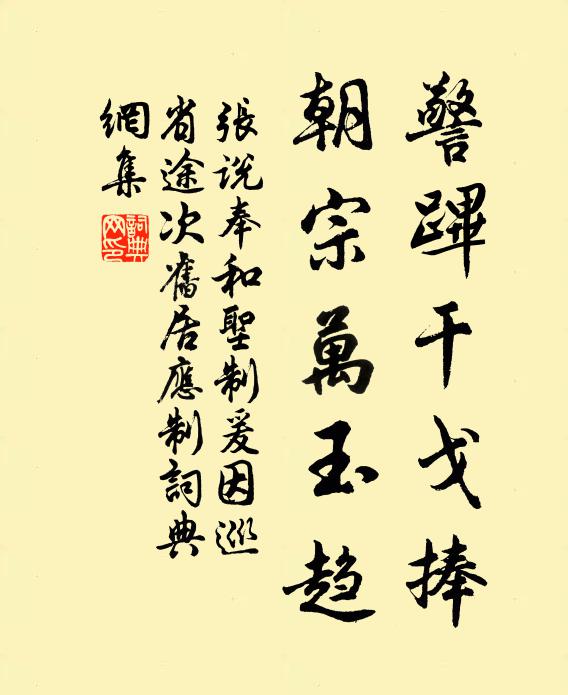 警蹕干戈捧
朝宗萬玉趨
張說奉和聖制爰因巡
省途次舊居應制詞典
網集
詞典網印